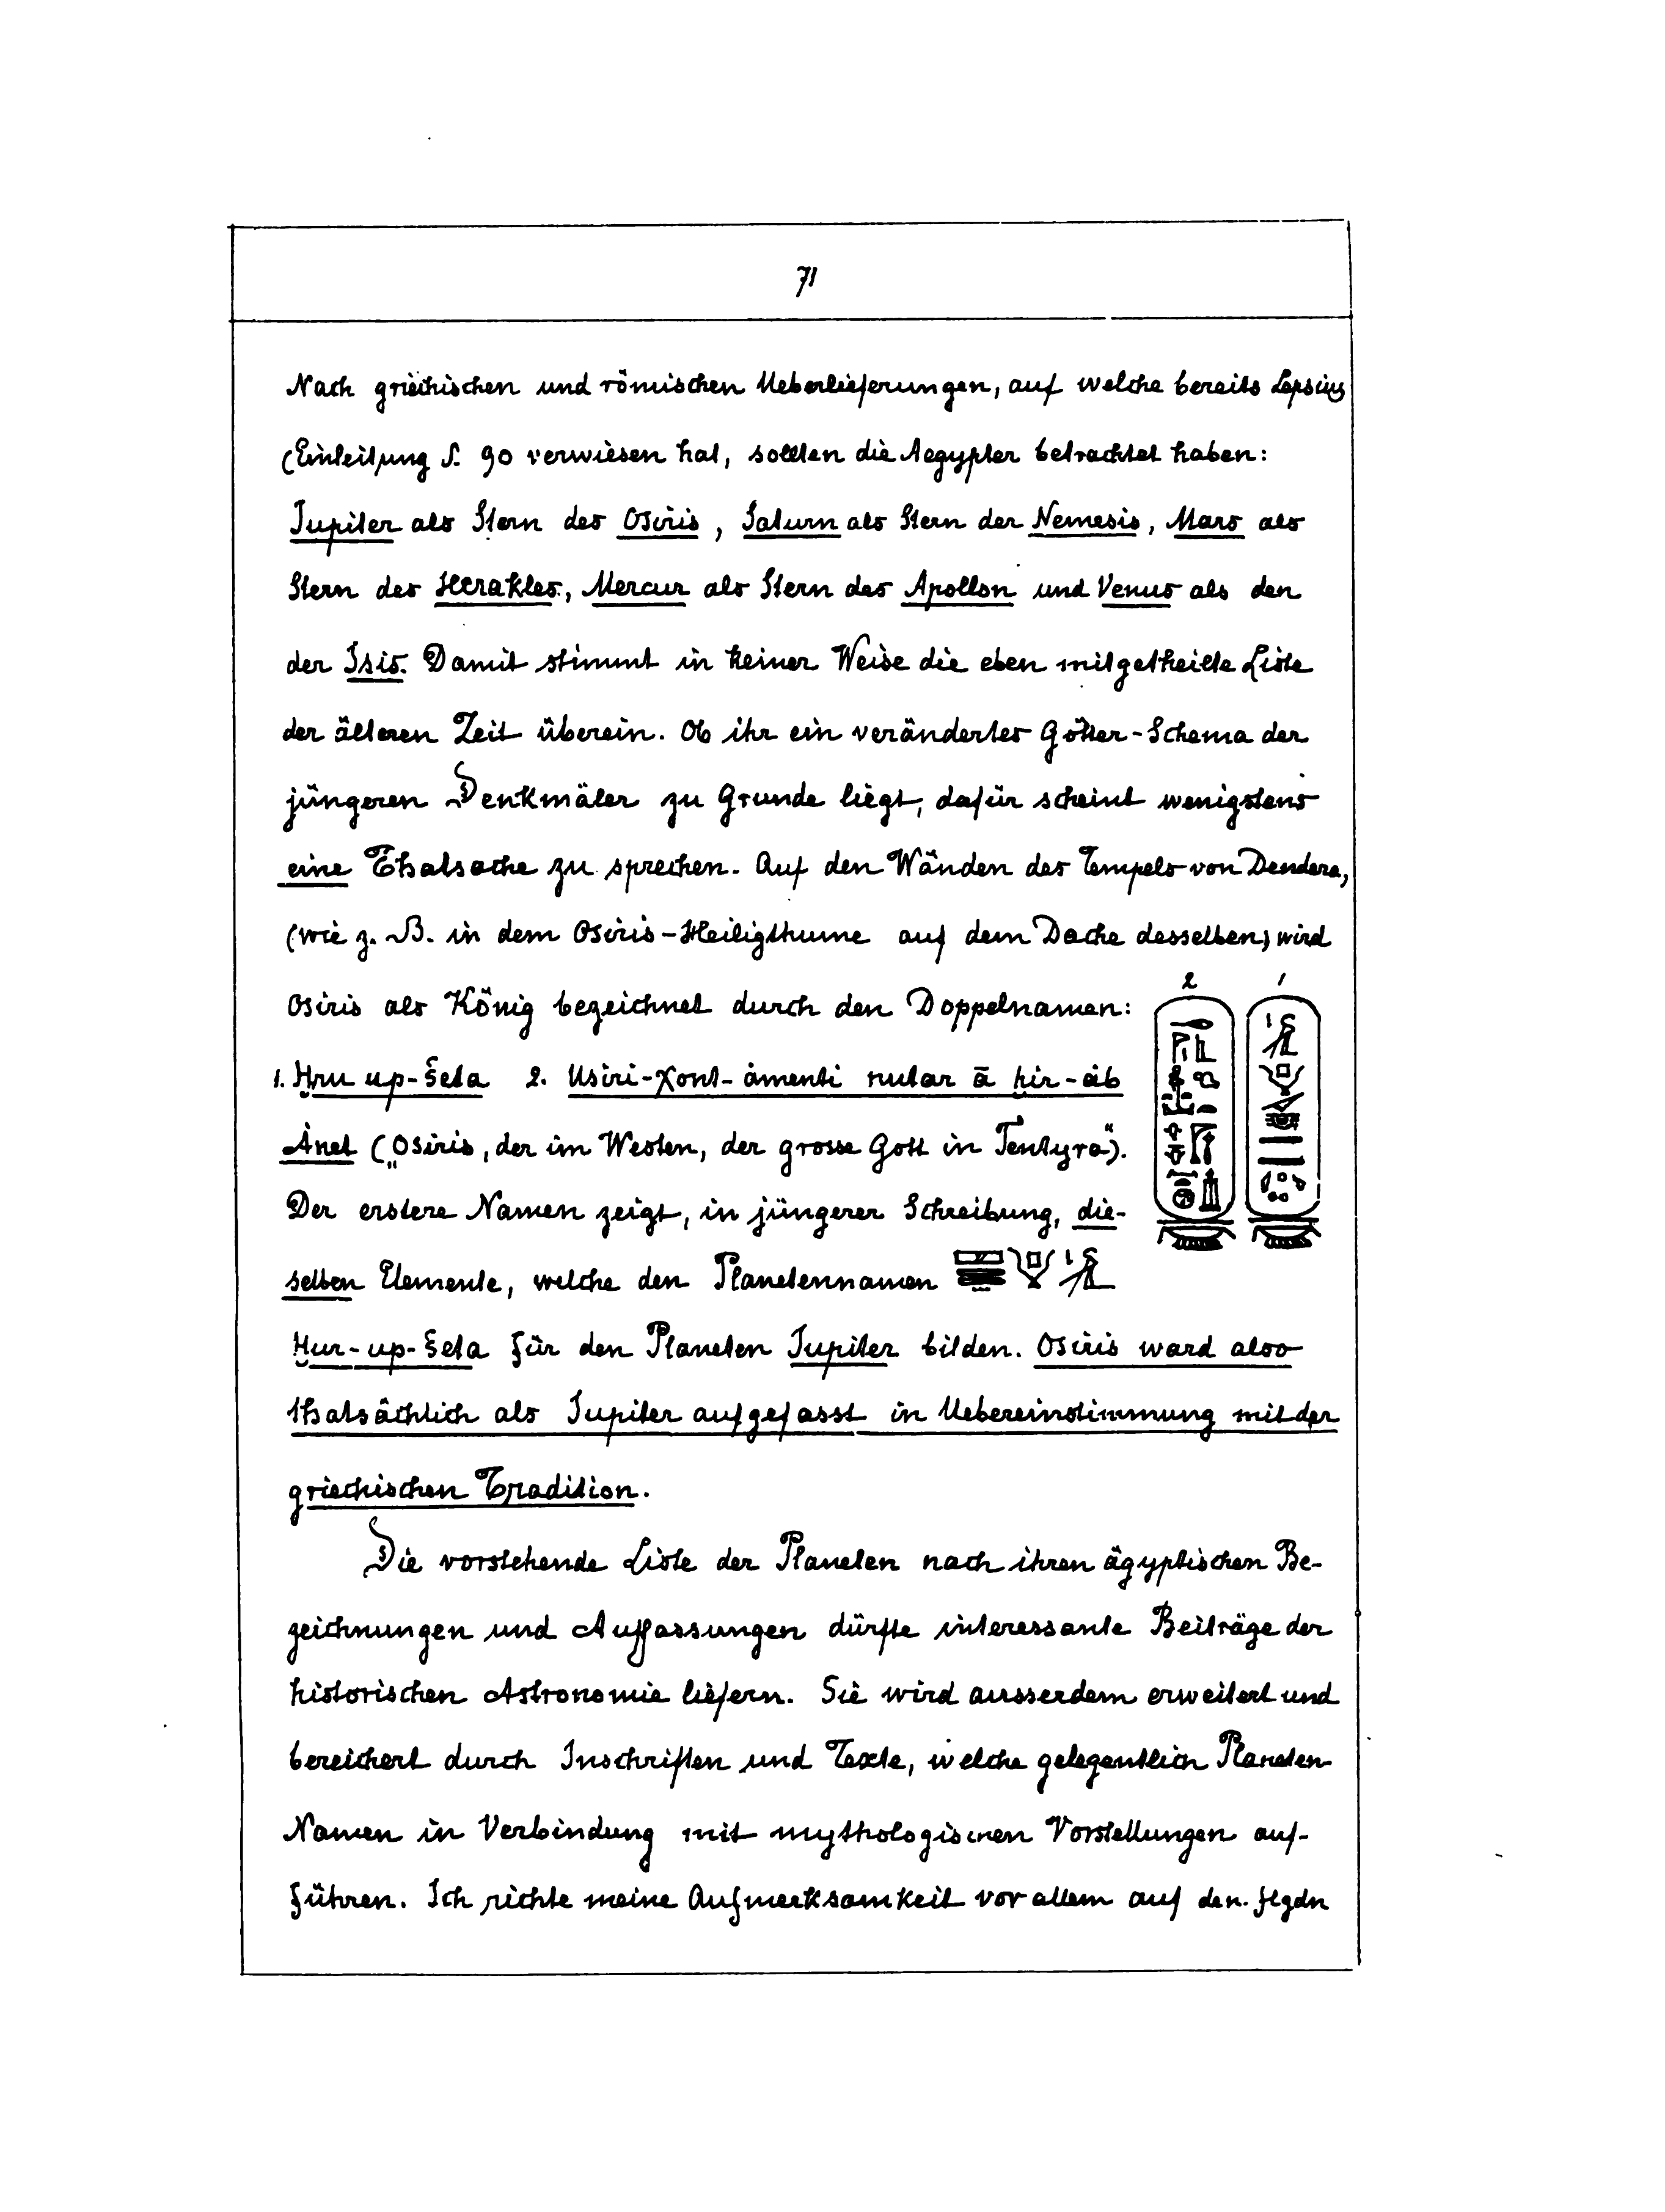 71
Nach griechischen und römischen Ueberlieferungen, auf welche bereits Lepsius
(Einleitung S. 90 verwiesen hat, sollten die Aegypter betrachtet haben:
Jupiter als Stern des Osiris, Saturn als Stern der Nemesis, Mars als
Stern des Herakles, Mercur als Stern des Apollon und Venus als den
der Isis. Damit stimmt in keiner Weise die eben mitgetheilte Liste
der älteren Zeit überein. Ob ihr ein verändertes Götter-Schema der
jüngeren Denkmäler zu Grunde liegt, dafür scheint wenigstens
eine Thatsache zu sprechen. Auf den Wänden des Tempels von Dendera,
(wie z. B. in dem Osiris-Heiligthume auf dem Dache desselben) wird
Osiris als König bezeichnet durch den Doppelnamen: 2 1
1. Ḥru up-šeta 2. Usiri-χont-amenti nutar ā ḥir-àb
Ȧnet („Osiris, der im Westen, der grosse Gott in Tentyra“).
Der erstere Namen zeigt, in jüngerer Schreibung, die-
selben Elemente, welche den Planetennamen
Ḥur-up-šeta für den Planeten Jupiter bilden. Osiris ward also
thatsächlich als Jupiter aufgefasst in Uebereinstimmung mit der
griechischen Tradition.
Die vorstehende Liste der Planeten nach ihren ägyptischen Be-
zeichnungen und Auffassungen dürfte interessante Beiträge der
historischen Astronomie liefern. Sie wird ausserdem erweitert und
bereichert durch Inschriften und Texte, welche gelegentlich Planeten-
Namen in Verbindung mit mythologischen Vorstellungen auf-
führen. Ich richte meine Aufmerksamkeit vor allem auf den flgdn